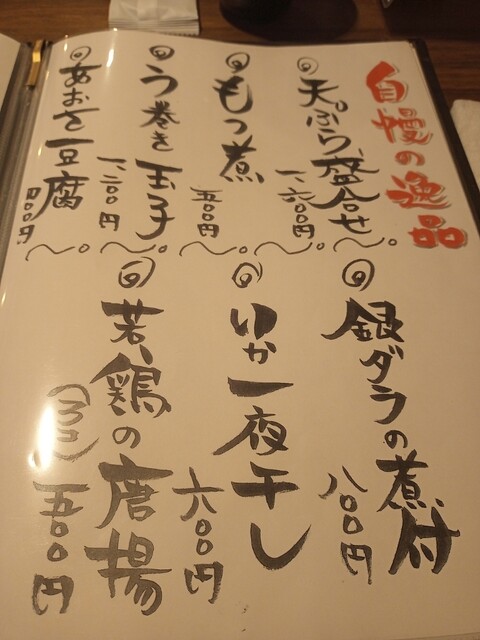 自慢の逸品
天ぷら盛合せ
一、六〇〇円
もつ煮
五〇〇円
う巻き玉子
一、二〇〇円
あおさ豆腐
四〇〇円
銀ダラの煮付
八〇〇円
いか一夜干し
六〇〇円
若鶏の唐揚
(5コ)
五〇〇円